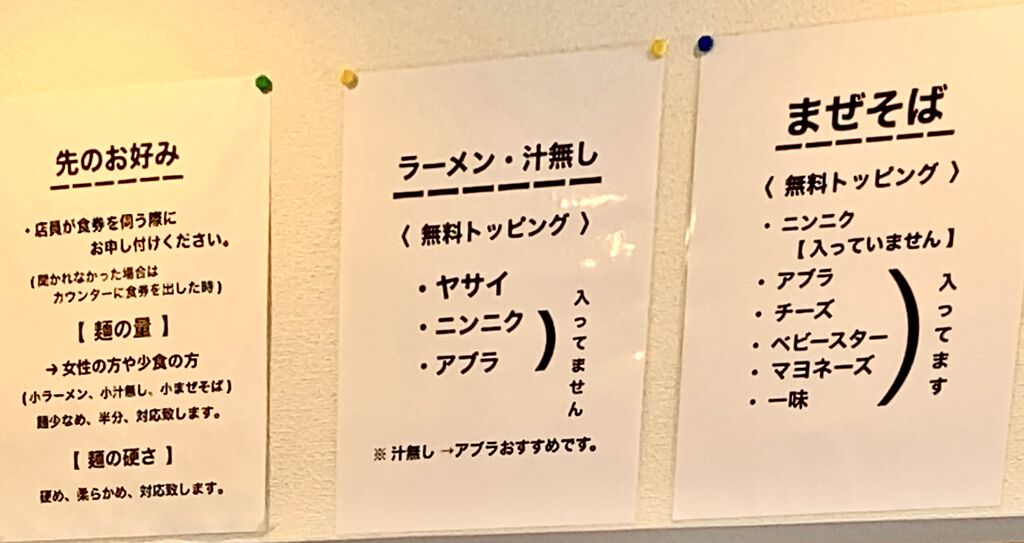 先のお好み
・店員が食券を伺う際に
お申し付けください。
(聞かれなかった場合は
カウンターに食券を出した時)
【 麺の量 】
→女性の方や少食の方
(小ラーメン、小汁無し、小まぜそば)
麺少なめ、半分、対応致します。
【 麺の硬さ 】
硬め、柔らかめ、対応致します。
ラーメン・汁無し
〈 無料トッピング 〉
・ヤサイ
・ニンニク
・アブラ
入ってません
※ 汁無し →アブラおすすめです。
まぜそば
〈 無料トッピング 〉
・ニンニク
【入っていません】
・アブラ
・チーズ
・ベビースター
・マヨネーズ
・一味
入ってます